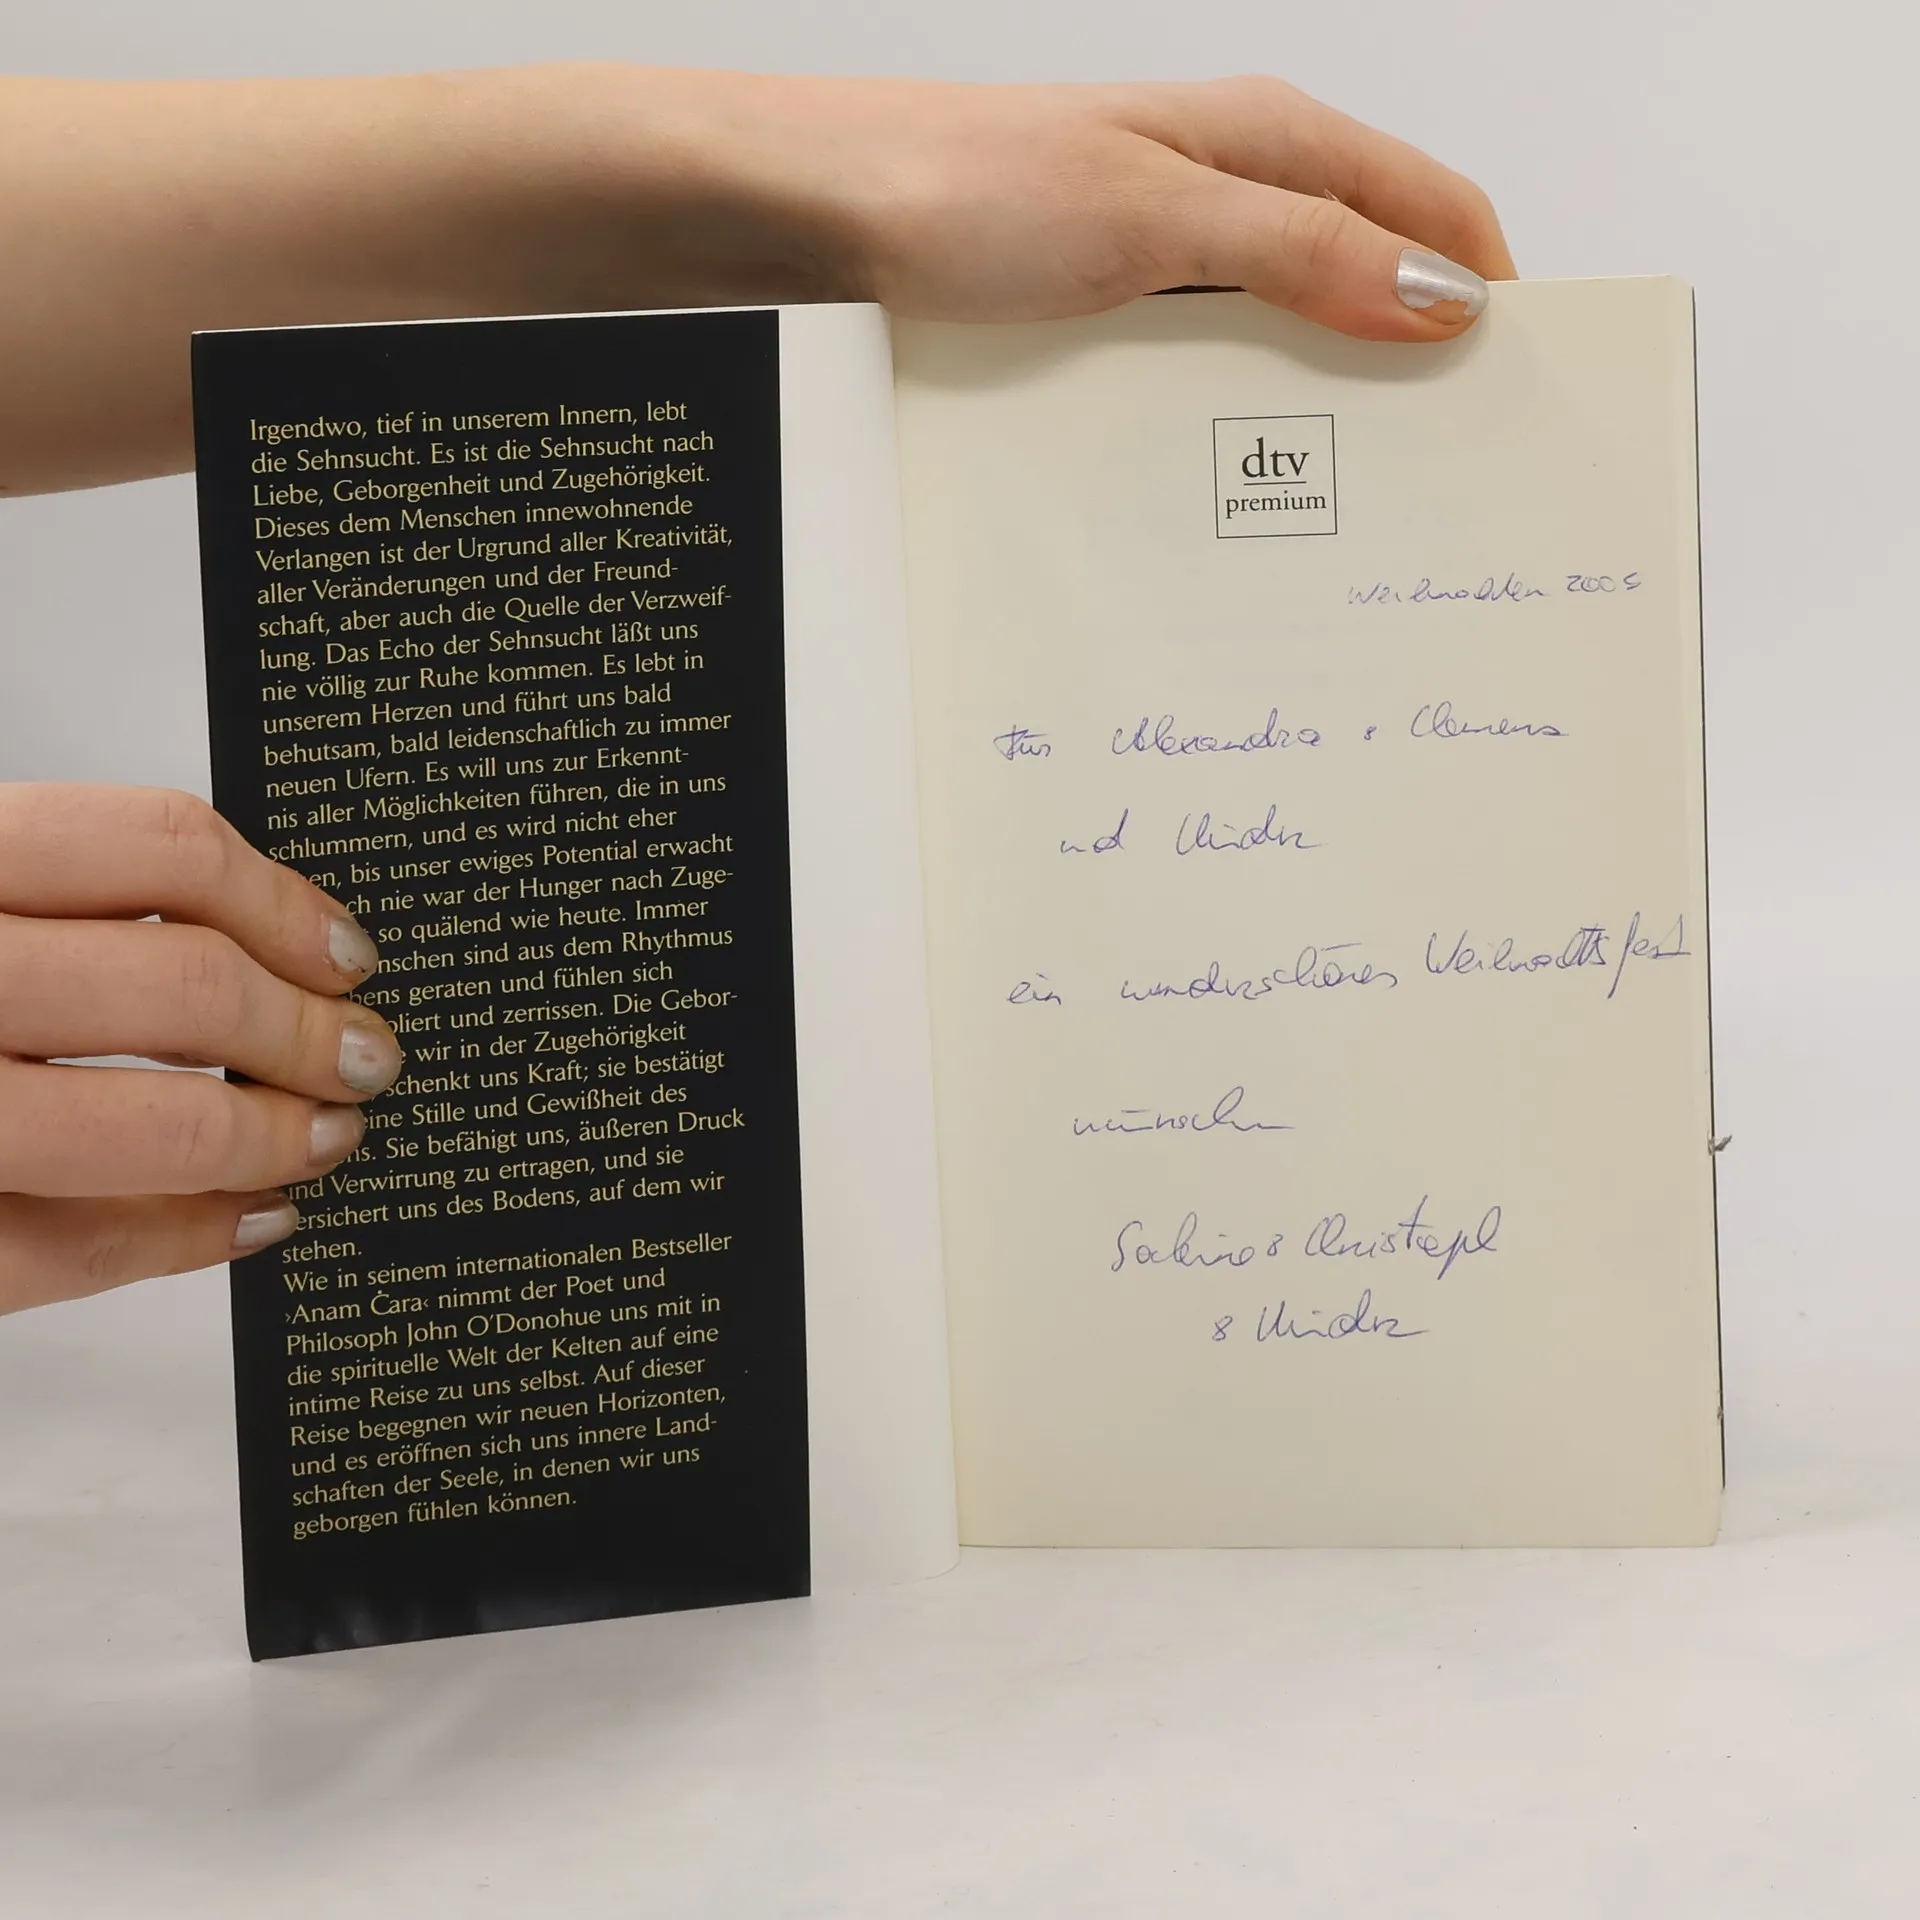 Irgendwo, tief in unserem Innern, lebt
die Sehnsucht. Es ist die Sehnsucht nach
Liebe, Geborgenheit und Zugehörigkeit.
Dieses dem Menschen innewohnende
Verlangen ist der Urgrund aller Kreativität,
aller Veränderungen und der Freund-
schaft, aber auch die Quelle der Verzweif-
lung. Das Echo der Sehnsucht läßt uns
nie völlig zur Ruhe kommen. Es lebt in
unserem Herzen und führt uns bald
behutsam, bald leidenschaftlich zu immer
neuen Ufern. Es will uns zur Erkennt-
nis aller Möglichkeiten führen, die in uns
schlummern, und es wird nicht eher
en, bis unser ewiges Potential erwacht
ch nie war der Hunger nach Zuge-
so quälend wie heute. Immer
nschen sind aus dem Rhythmus
bens geraten und fühlen sich
oliert und zerrissen. Die Gebor-
wir in der Zugehörigkeit
schenkt uns Kraft; sie bestätigt
eine Stille und Gewißheit des
ns. Sie befähigt uns, äußeren Druck
und Verwirrung zu ertragen, und sie
ersichert uns des Bodens, auf dem wir
stehen.
Wie in seinem internationalen Bestseller
›Anam Ċara‹ nimmt der Poet und
Philosoph John O'Donohue uns mit in
die spirituelle Welt der Kelten auf eine
intime Reise zu uns selbst. Auf dieser
Reise begegnen wir neuen Horizonten,
und es eröffnen sich uns innere Land-
schaften der Seele, in denen wir uns
geborgen fühlen können.
dtv
premium
Weihnachten 2005
Für Alexandra & Clemens
und Kinder
ein wunderschönes Weihnachtsfest
wünschen
Sabine & Christoph
& Kinder